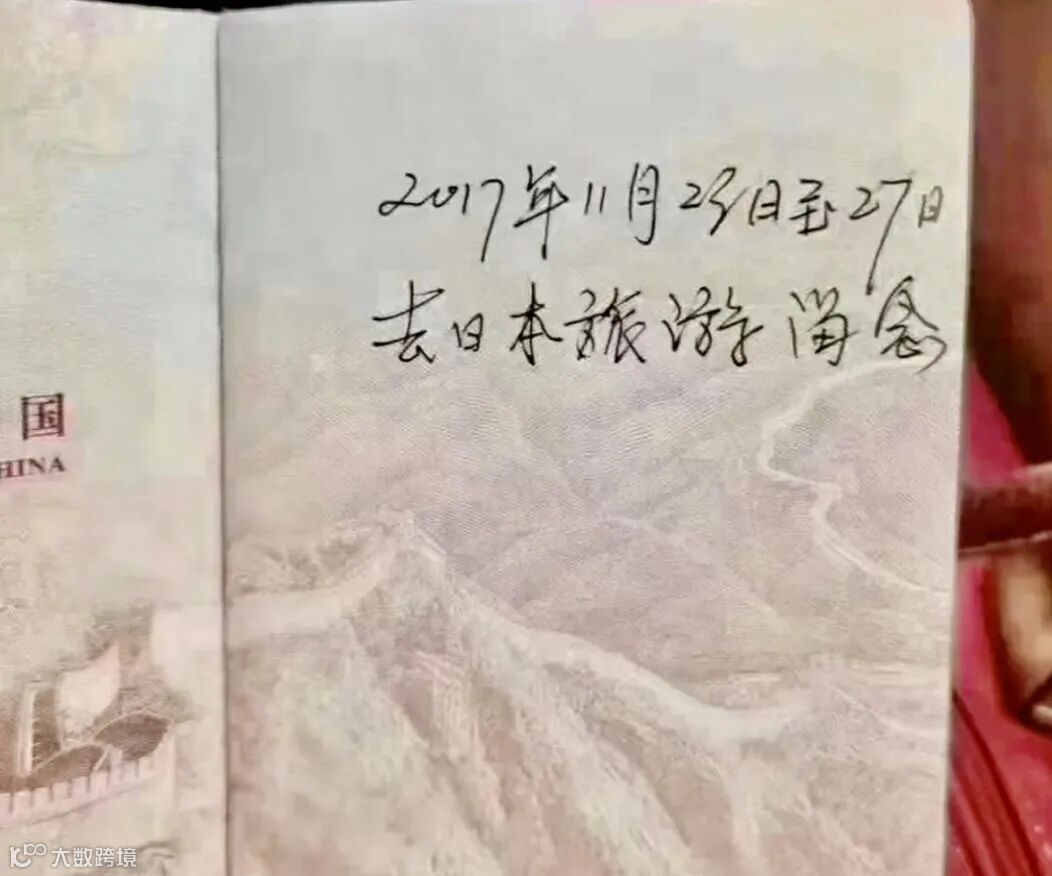 2017年11月23日至27日
去日本旅游留念
国
HINA
大数跨境